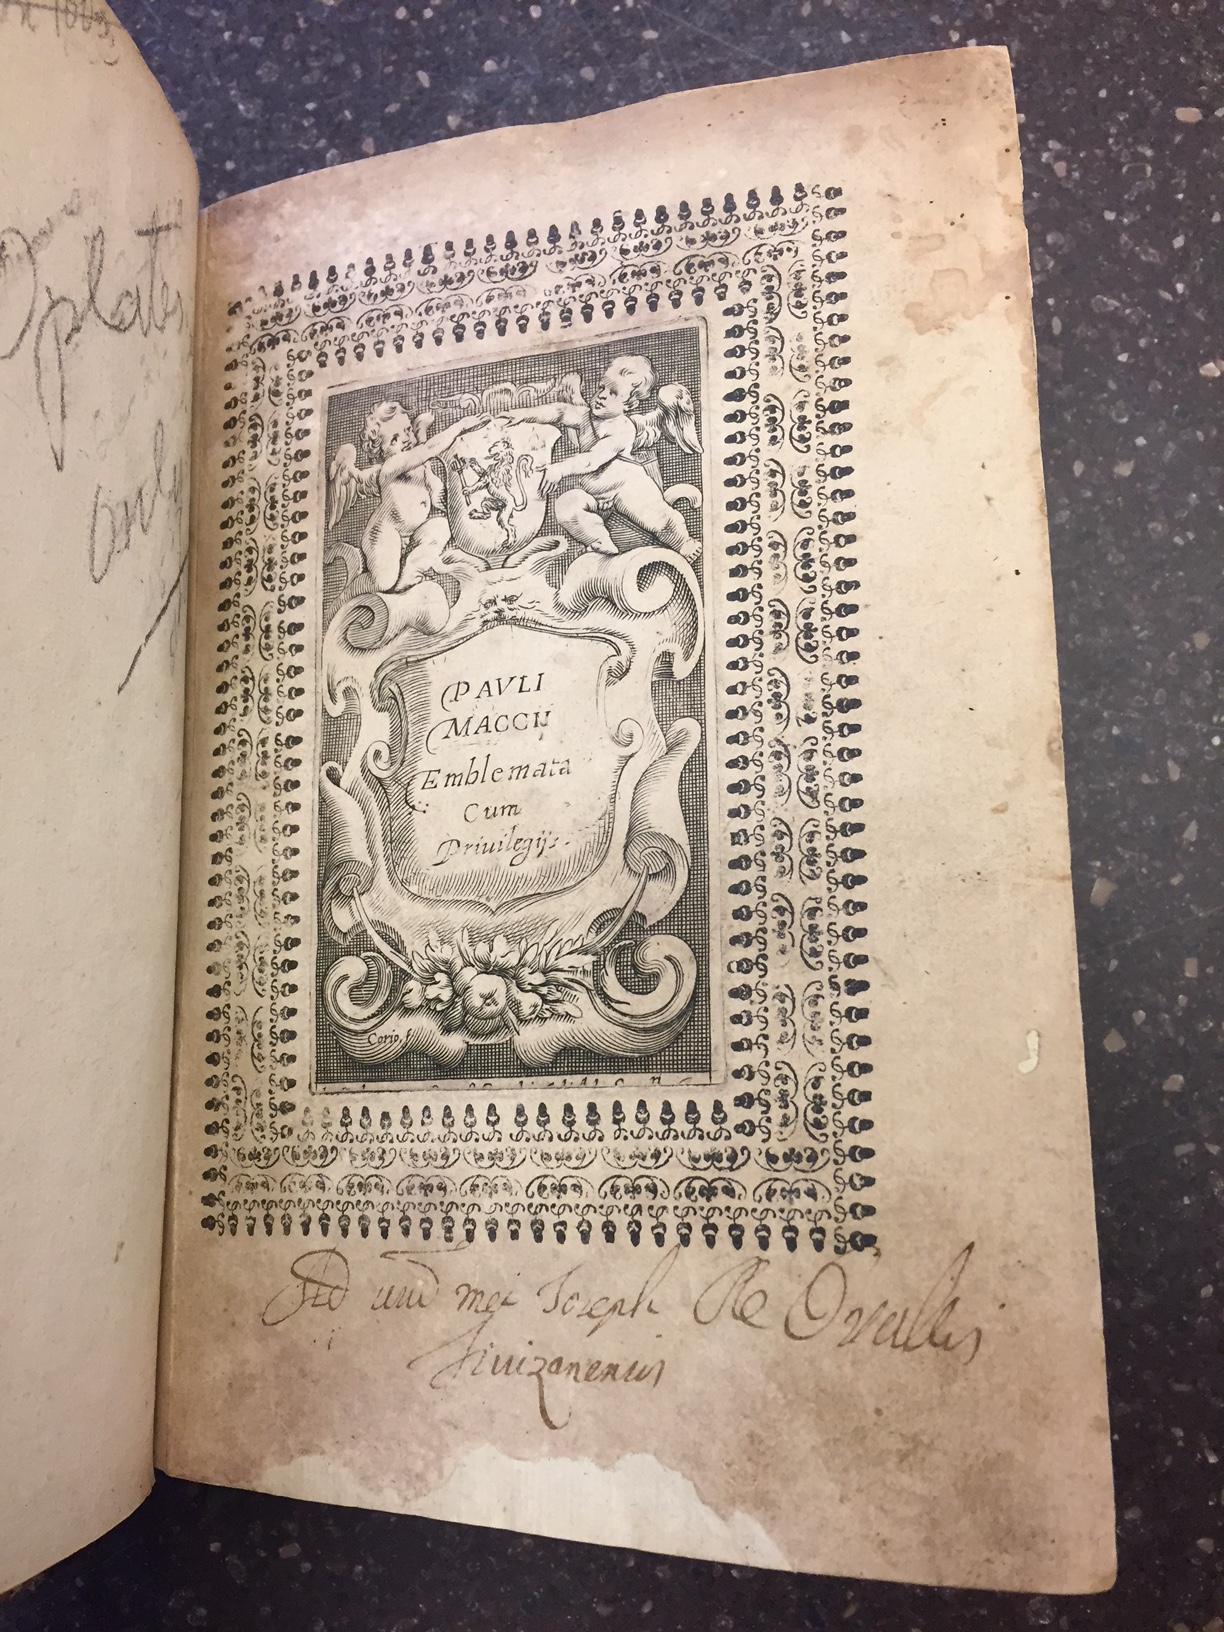 plates
only
PAVLI
MACCIJ
Emblemata
Cum
Priuilegijs.
Corio, f
Ad usū mei Joseph
Fiuizanensis